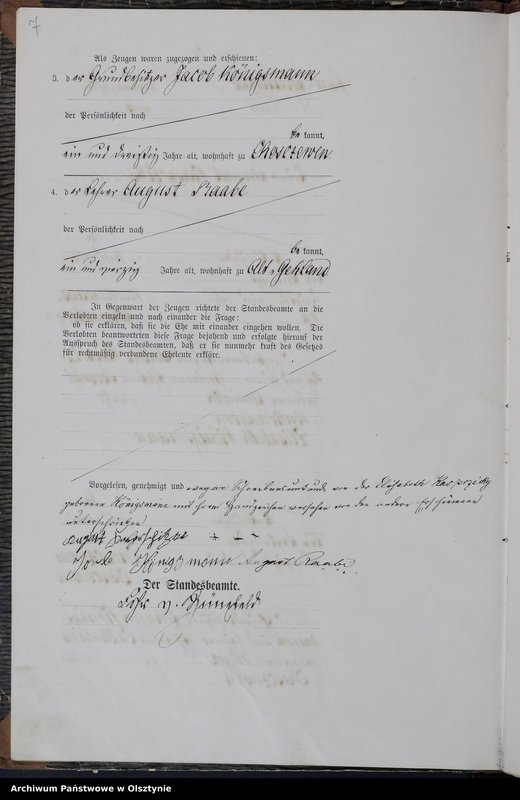 7
Als Zeugen waren zugezogen und erschienen:
3. der Grundbesitzer Jacob Königsmann
der Persönlichkeit nach
be kannt,
ein und dreißig Jahre alt, wohnhaft zu Choszewen
4. der Lehrer August Raabe
der Persönlichkeit nach
be kannt,
ein und vierzig Jahre alt, wohnhaft zu Alt-Gehland
In Gegenwart der Zeugen richtete der Standesbeamte an die
Verlobten einzeln und nach einander die Frage:
ob sie erklären, daß sie die Ehe mit einander eingehen wollen. Die
Verlobten beantworteten diese Frage bejahend und erfolgte hierauf der
Ausspruch des Standesbeamten, daß er sie nunmehr kraft des Gesetzes
für rechtmäßig verbundene Eheleute erkläre.
Vorgelesen, genehmigt und wegen Schreibensunkunde von der Elisabeth
geborene Königsmann mit ihrem Handzeichen versehen von den andern Erschienenen
unterschrieben
August + + +
Jacob Königsmann August Raabe
Der Standesbeamte.
v.
Archiwum Państwowe w Olsztynie